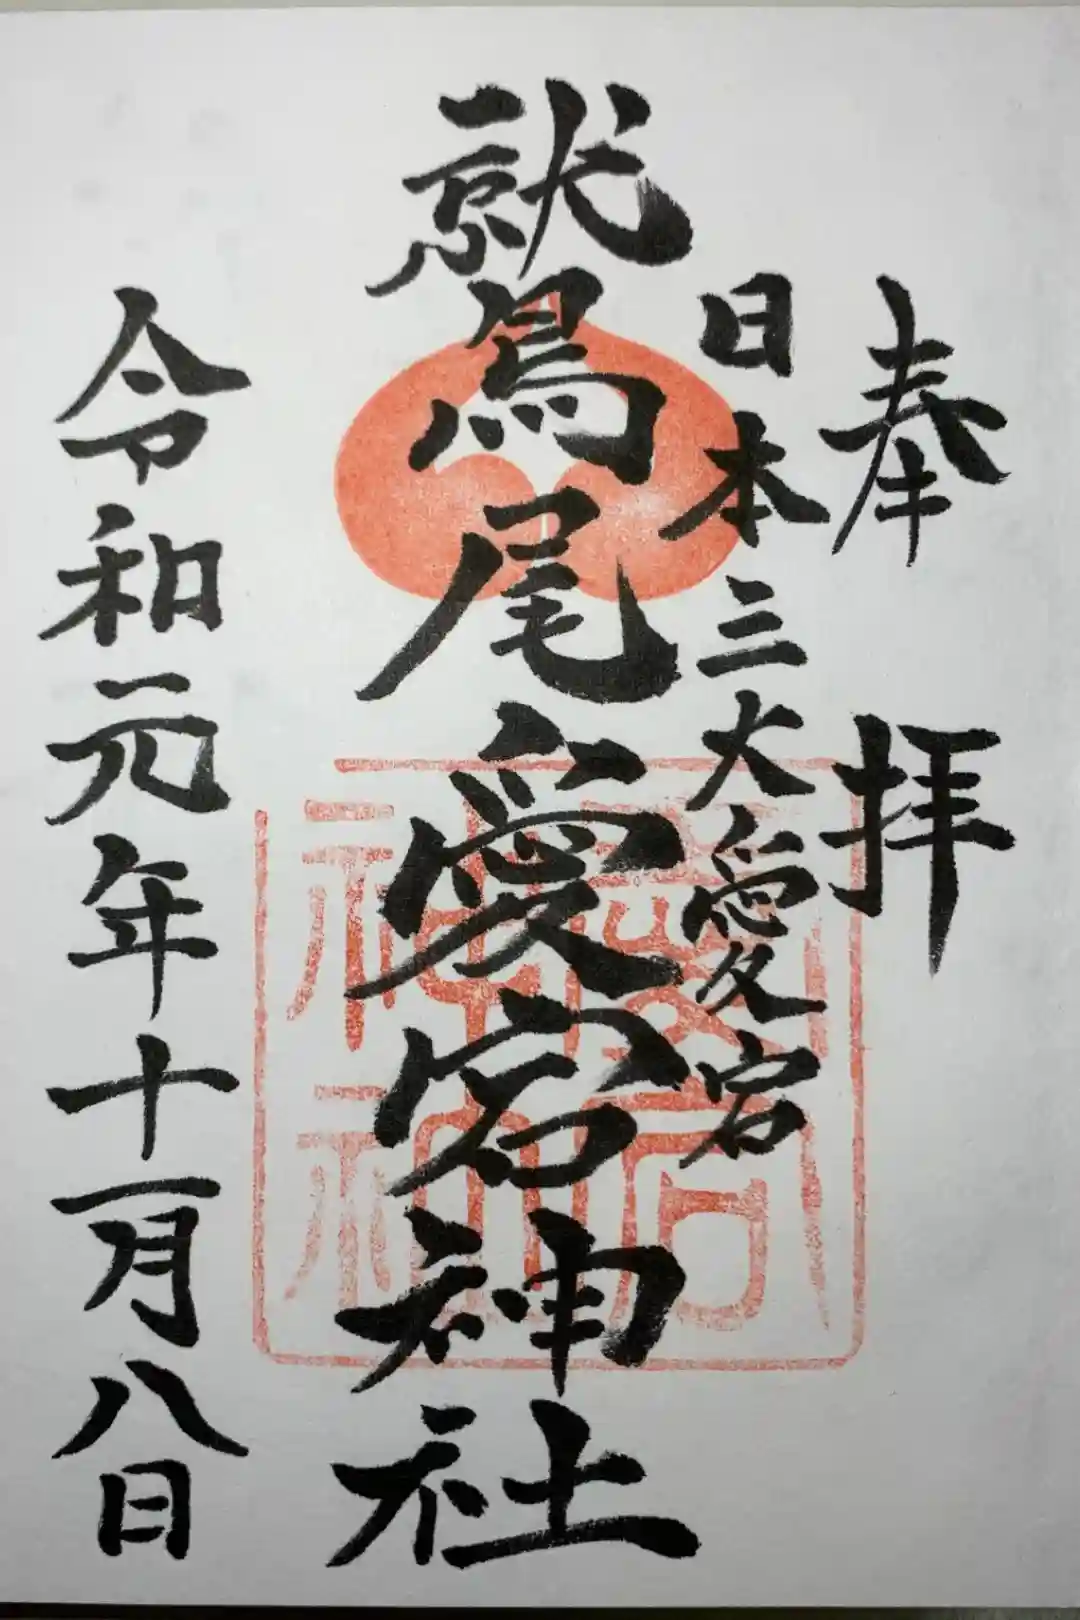 奉拝
日本三大愛宕
鷲尾愛宕神社
令和元年十一月八日
愛宕
神社